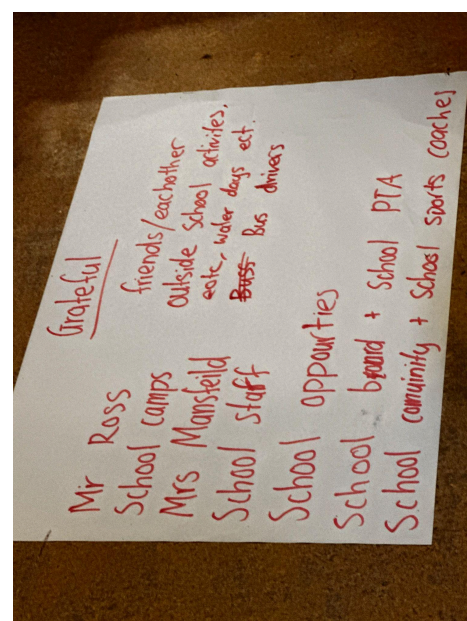 Grateful
Mr Ross
School camps
Mrs Mansfeild
School staff
School oppourties
School board + School PTA
School comuinity + School sports coaches
friends/eachother
outside School activites,
eotc, water days ect.
Buss Bus drivers